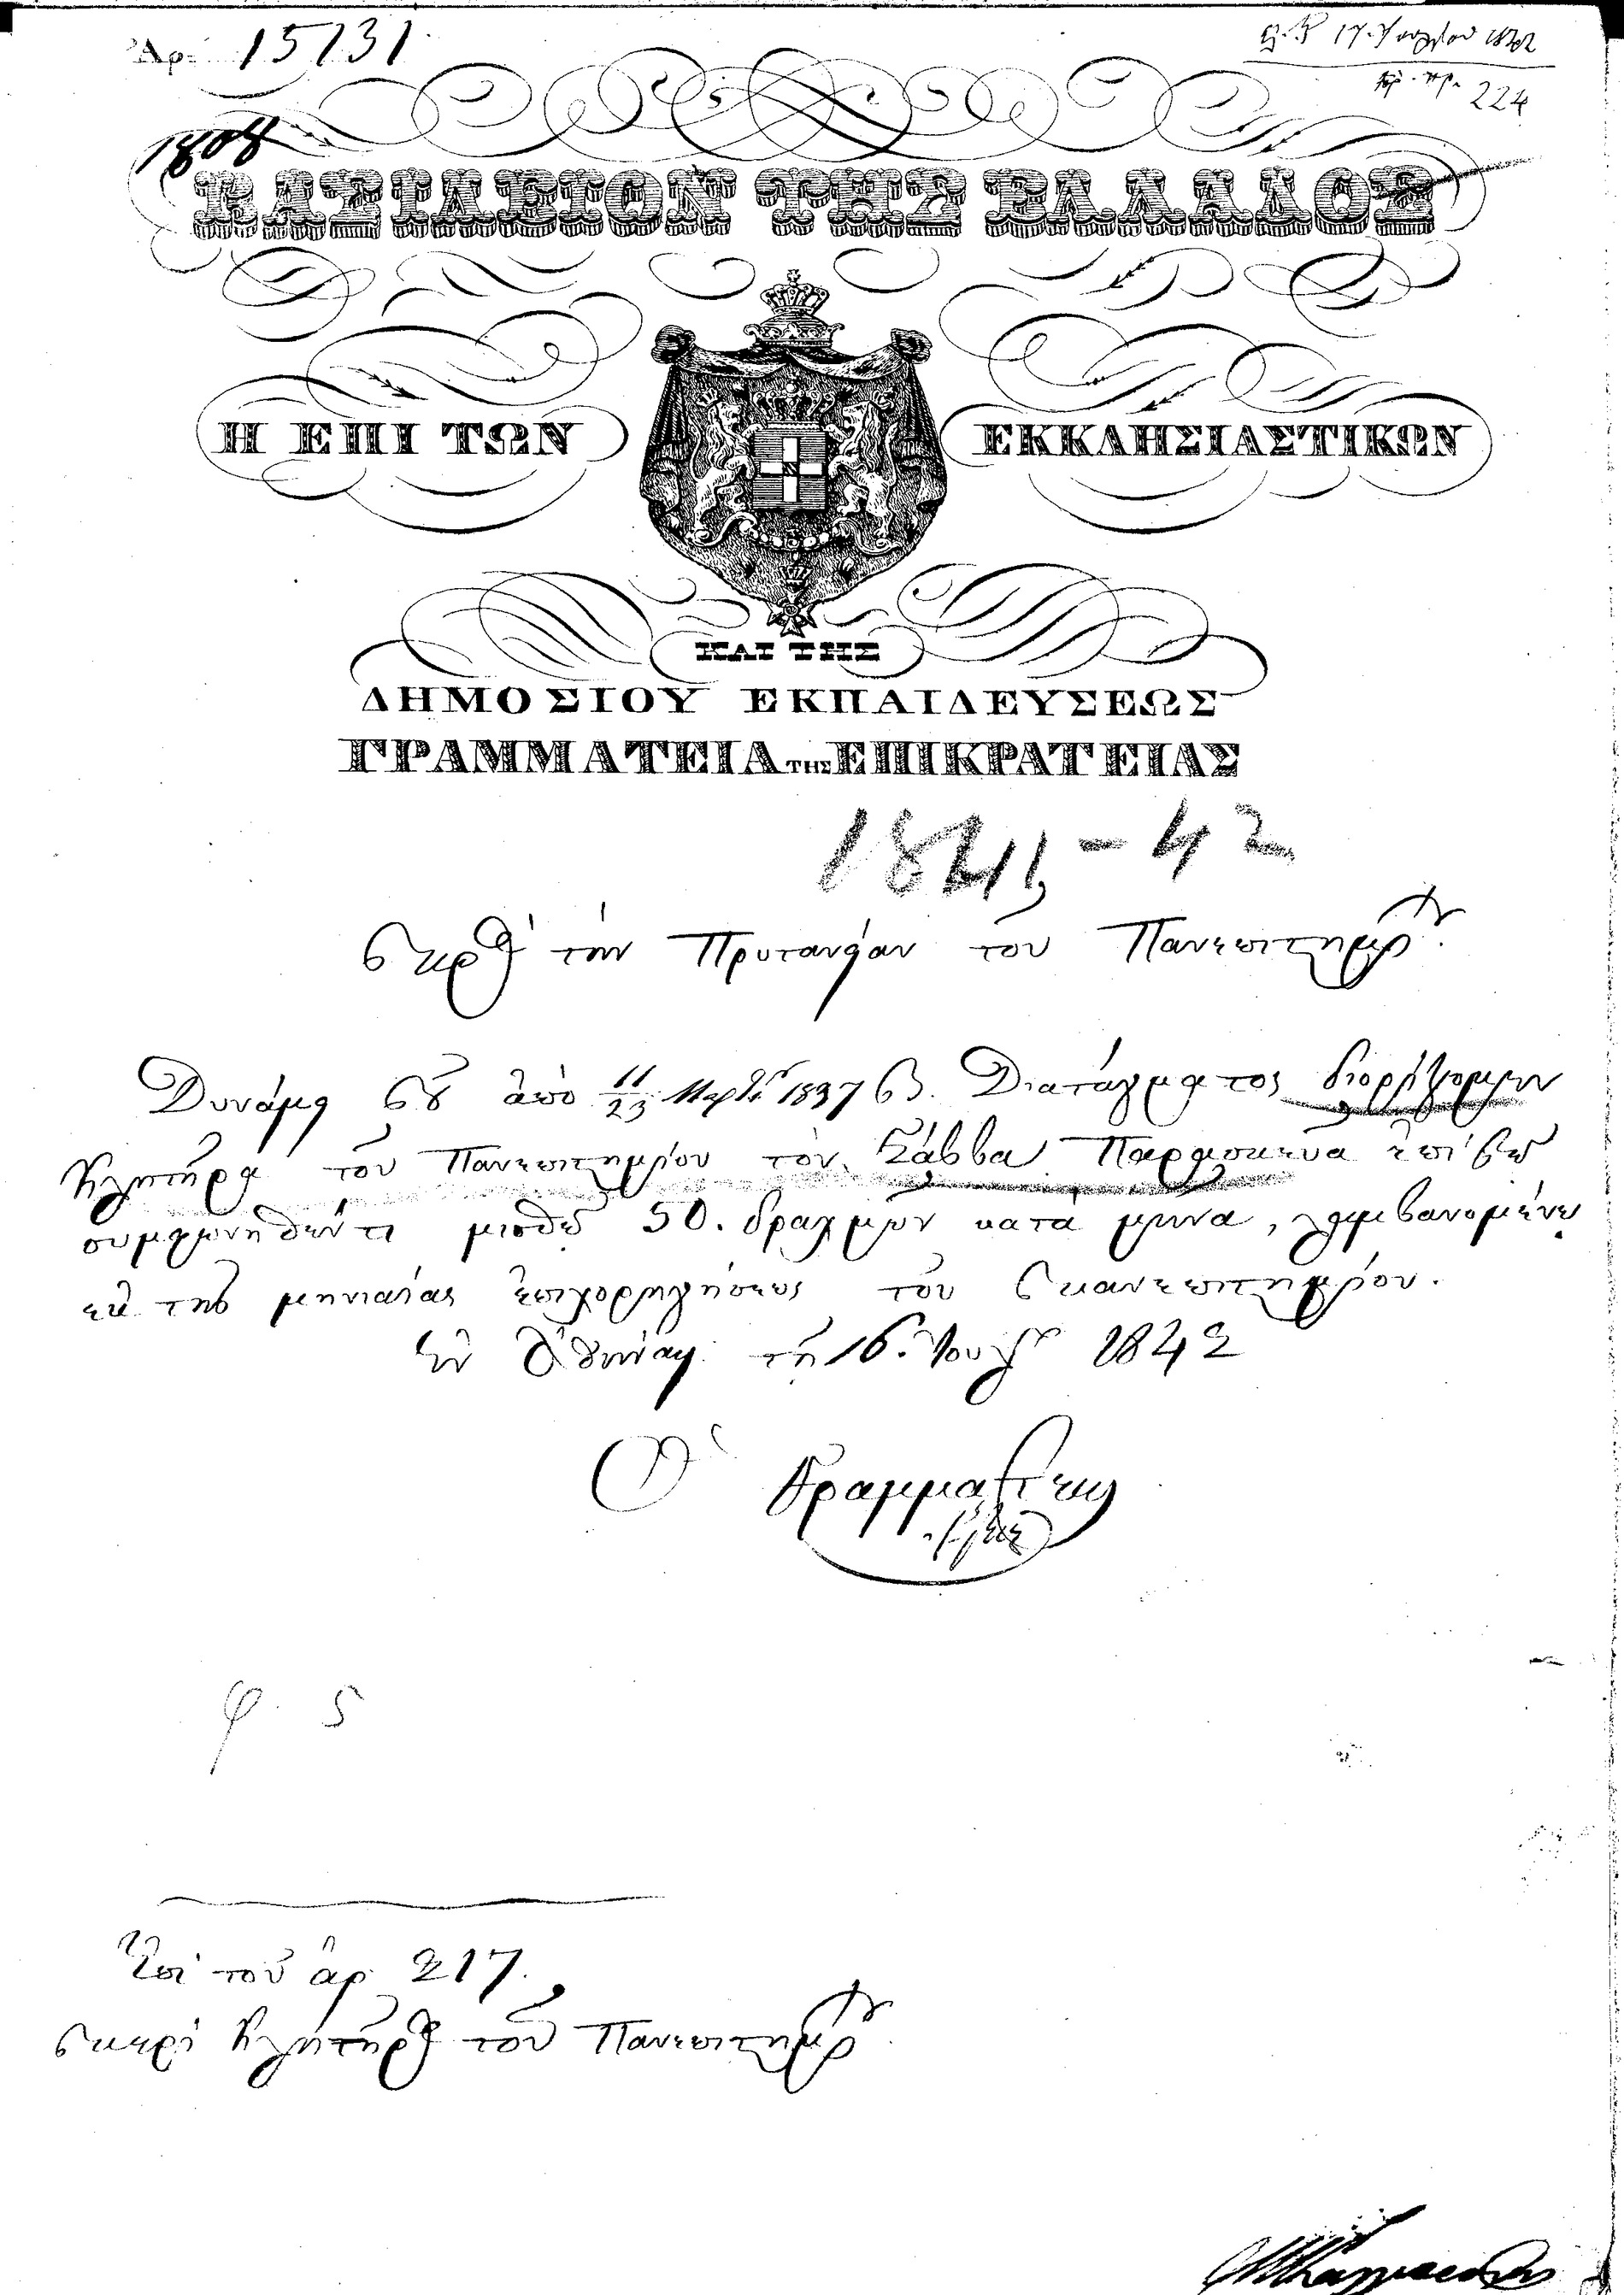 Ἀρ. 15131
17 Ἰουλίου 1842
ἀρ. πρ. 224
1808
ΒΑΣΙΛΕΙΟΝ ΤΗΣ ΕΛΛΑΔΟΣ
Η ΕΠΙ ΤΩΝ ΕΚΚΛΗΣΙΑΣΤΙΚΩΝ
ΚΑΙ ΤΗΣ
ΔΗΜΟΣΙΟΥ ΕΚΠΑΙΔΕΥΣΕΩΣ
ΓΡΑΜΜΑΤΕΙΑ ΤΗΣ ΕΠΙΚΡΑΤΕΙΑΣ
1841-42
Πρὸς τὴν Πρυτανείαν τοῦ Πανεπιστημίου
Δυνάμει τοῦ ἀπὸ 11/23 Μαρτίου 1837 Β. Διατάγματος διορίζομεν
Κλητῆρα τοῦ Πανεπιστημίου τὸν Σάββα Παρασκευᾶ ἐπὶ τῷ
συμφωνηθέντι μισθῷ 50. δραχμῶν κατὰ μῆνα, λαμβανομένῳ
ἐκ τῆς μηνιαίας ἐπιχορηγήσεως τοῦ Πανεπιστημίου.
Ἐν Ἀθήναις τῇ 16 Ἰουλίου 1842
Ὁ Γραμματεὺς
φ. 5
Ἐπὶ τοῦ ἀρ. 217.
περὶ Κλητῆρος τοῦ Πανεπιστημίου